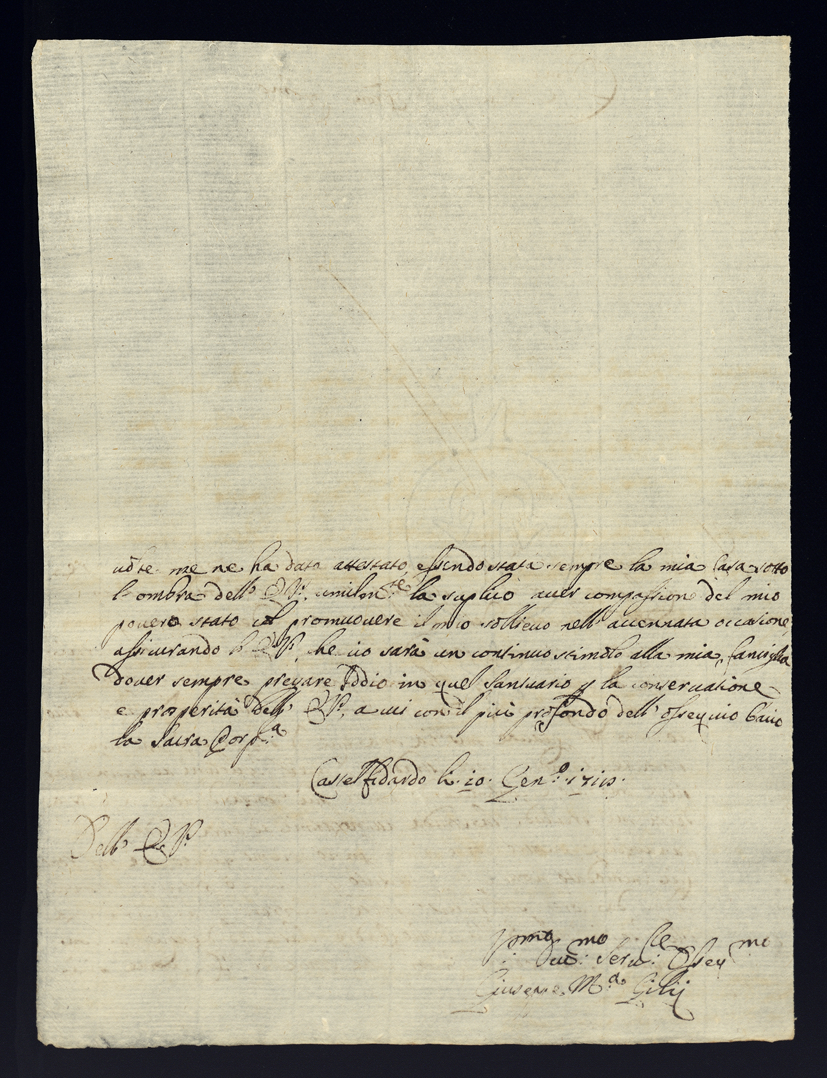 uõte me ne ha data attestato, essendo stata sempre la mia Casa sotto
l'ombra dell' umilm.te la suplico auer compassione del mio
pouero stato col promuouere il mio sollieuo nell' accennata occasione
assicurando l' che ciò sarà un continuo stimolo alla mia famiglia
douer sempre pregare Iddio in quel Santuario p la conseruatione
e prosperità dell' a cui con il più profondo dell' ossequio bacio
la Sacra
Castelfidardo li 10. Gen.o
Dell'
Deu.mo Seru.e Osseq.mo
Giuseppe M.a Gilij